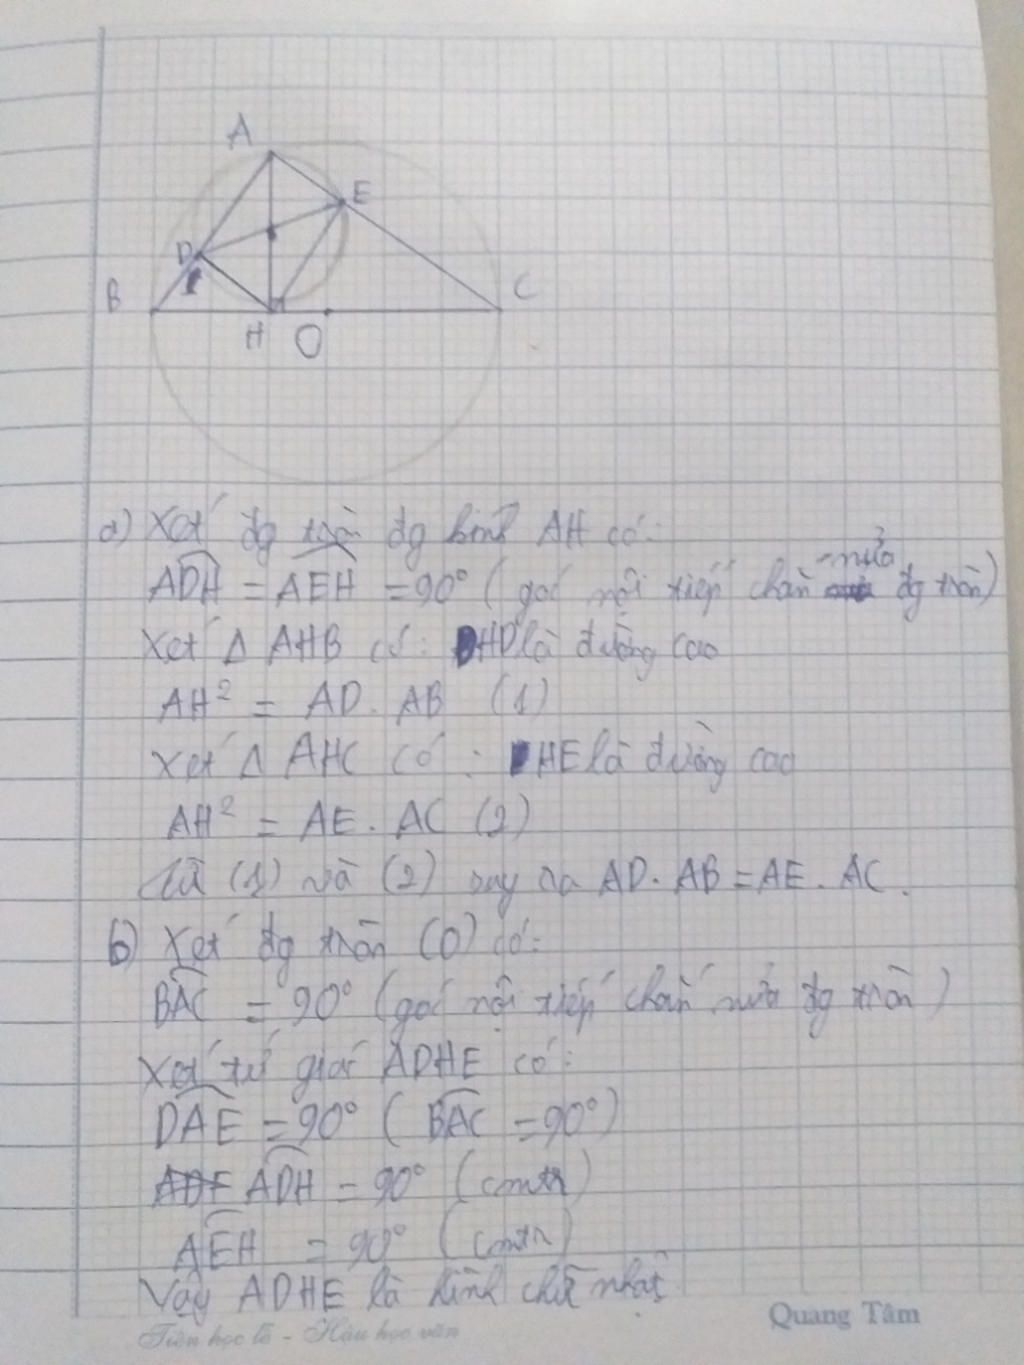 A
E
D
B
C
H
O
a) Xét đg tròn đg kính AH có:
ADH = AEH = 90° (góc nội tiếp chắn nửa đg tròn)
Xét Δ AHB có: HD là đường cao
AH² = AD. AB (1)
Xét Δ AHC có: HE là đường cao
AH² = AE. AC (2)
Từ (1) và (2) suy ra AD. AB = AE. AC.
b) Xét đg tròn (O) có:
BAC = 90° (góc nội tiếp chắn nửa đg tròn)
Xét tứ giác ADHE có:
DAE = 90° (BAC = 90°)
ADH = 90° (cmtr)
AEH = 90° (cmtr)
Vậy ADHE là hình chữ nhật
Tiên học lễ - Hậu học văn
Quang Tâm